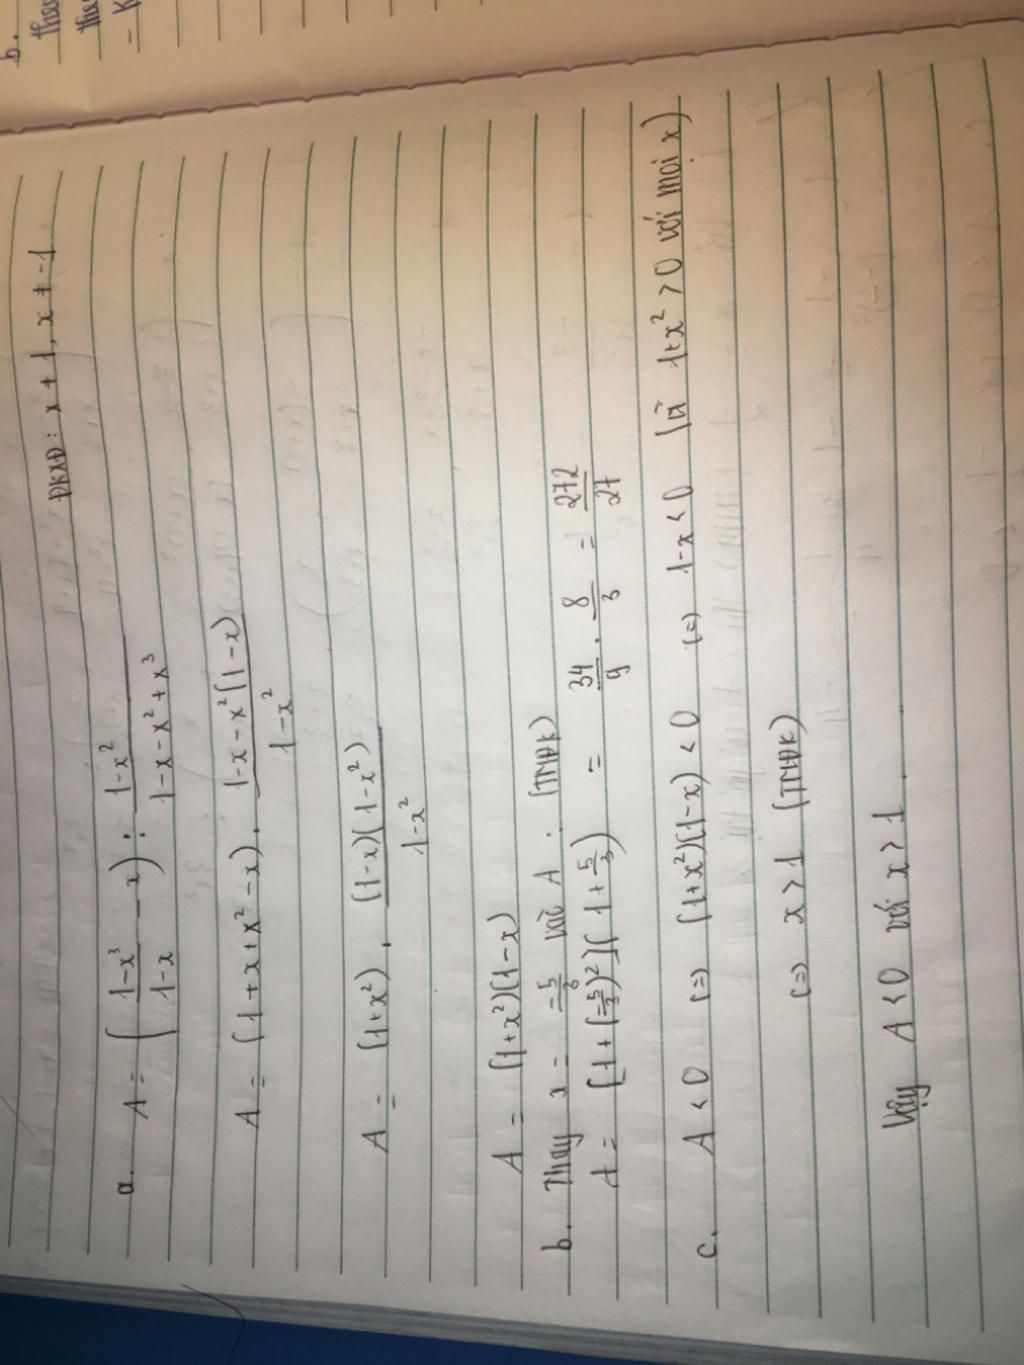 b.
ther
the
- K
ĐKXĐ: x ≠ 1, x ≠ -1
a. A = ( (1-x³)/(1-x) - x ) : (1-x²)/(1-x-x²+x³)
A = (1+x+x²-x) . (1-x-x²(1-x))/(1-x²)
A = (1+x²) . ((1-x)(1-x²))/(1-x²)
A = (1+x²)(1-x)
b. Thay x = -5/3 vào A : (TMĐK)
A = [1+(-5/3)²](1+5/3) = 34/9 . 8/3 = 272/27
c. A < 0 (=) (1+x²)(1-x) < 0 (=) 1-x < 0 (Vì 1+x² > 0 với mọi x)
(=) x > 1 (TMĐK)
Vậy A < 0 với x > 1 .